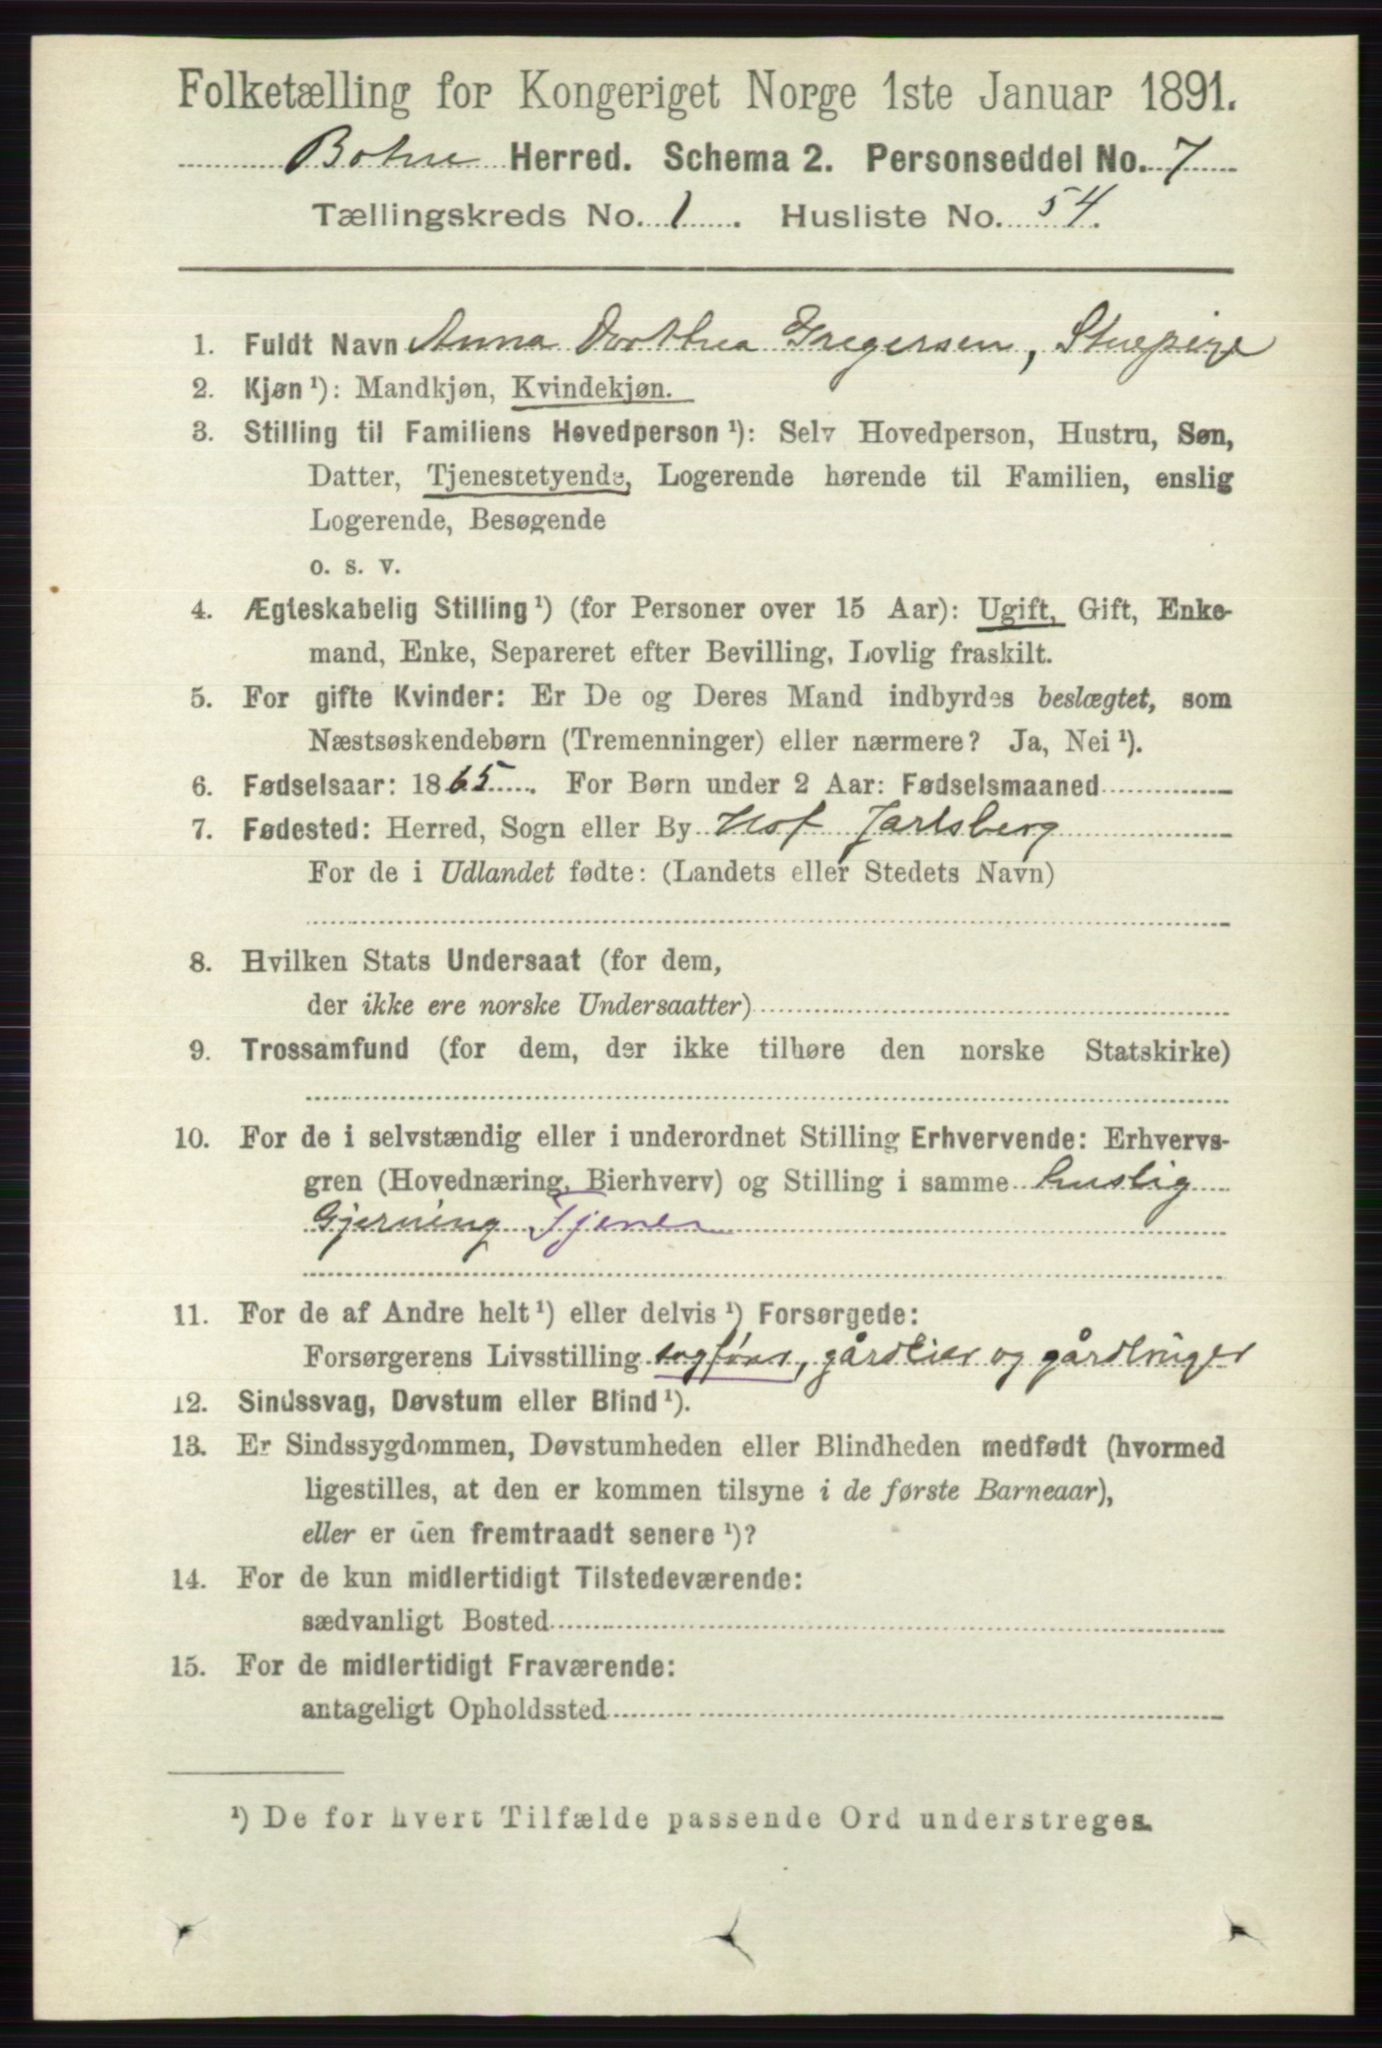 Folketælling for Kongeriget Norge 1ste Januar 1891.
Botne Herred. Schema 2. Personseddel No. 7
Tællingskreds No. 1. Husliste No. 54.
1. Fuldt Navn Anna Dorthea Gregersen, Stuepige
2. Kjøn ¹): Mandkjøn, Kvindekjøn.
3. Stilling til Familiens Hovedperson ¹): Selv Hovedperson, Hustru, Søn,
Datter, Tjenestetyende, Logerende hørende til Familien, enslig
Logerende, Besøgende
o. s. v.
4. Ægteskabelig Stilling ¹) (for Personer over 15 Aar): Ugift, Gift, Enke-
mand, Enke, Separeret efter Bevilling, Lovlig fraskilt.
5. For gifte Kvinder: Er De og Deres Mand indbyrdes beslægtet, som
Næstsøskendebørn (Tremenninger) eller nærmere? Ja, Nei ¹).
6. Fødselsaar: 1865. For Børn under 2 Aar: Fødselsmaaned
7. Fødested: Herred, Sogn eller By Hof Jarlsberg
For de i Udlandet fødte: (Landets eller Stedets Navn)
8. Hvilken Stats Undersaat (for dem,
der ikke ere norske Undersaatter)
9. Trossamfund (for dem, der ikke tilhøre den norske Statskirke)
10. For de i selvstændig eller i underordnet Stilling Erhvervende: Erhvervs-
gren (Hovednæring, Bierhverv) og Stilling i samme huslig
Gjerning Tjener
11. For de af Andre helt ¹) eller delvis ¹) Forsørgede:
Forsørgerens Livsstilling gårdeier og gårdbruger
12. Sindssvag, Døvstum eller Blind ¹).
13. Er Sindssygdommen, Døvstumheden eller Blindheden medfødt (hvormed
ligestilles, at den er kommen tilsyne i de første Barneaar),
eller er den fremtraadt senere ¹)?
14. For de kun midlertidigt Tilstedeværende:
sædvanligt Bosted
15. For de midlertidigt Fraværende:
antageligt Opholdssted
¹) De for hvert Tilfælde passende Ord understreges.